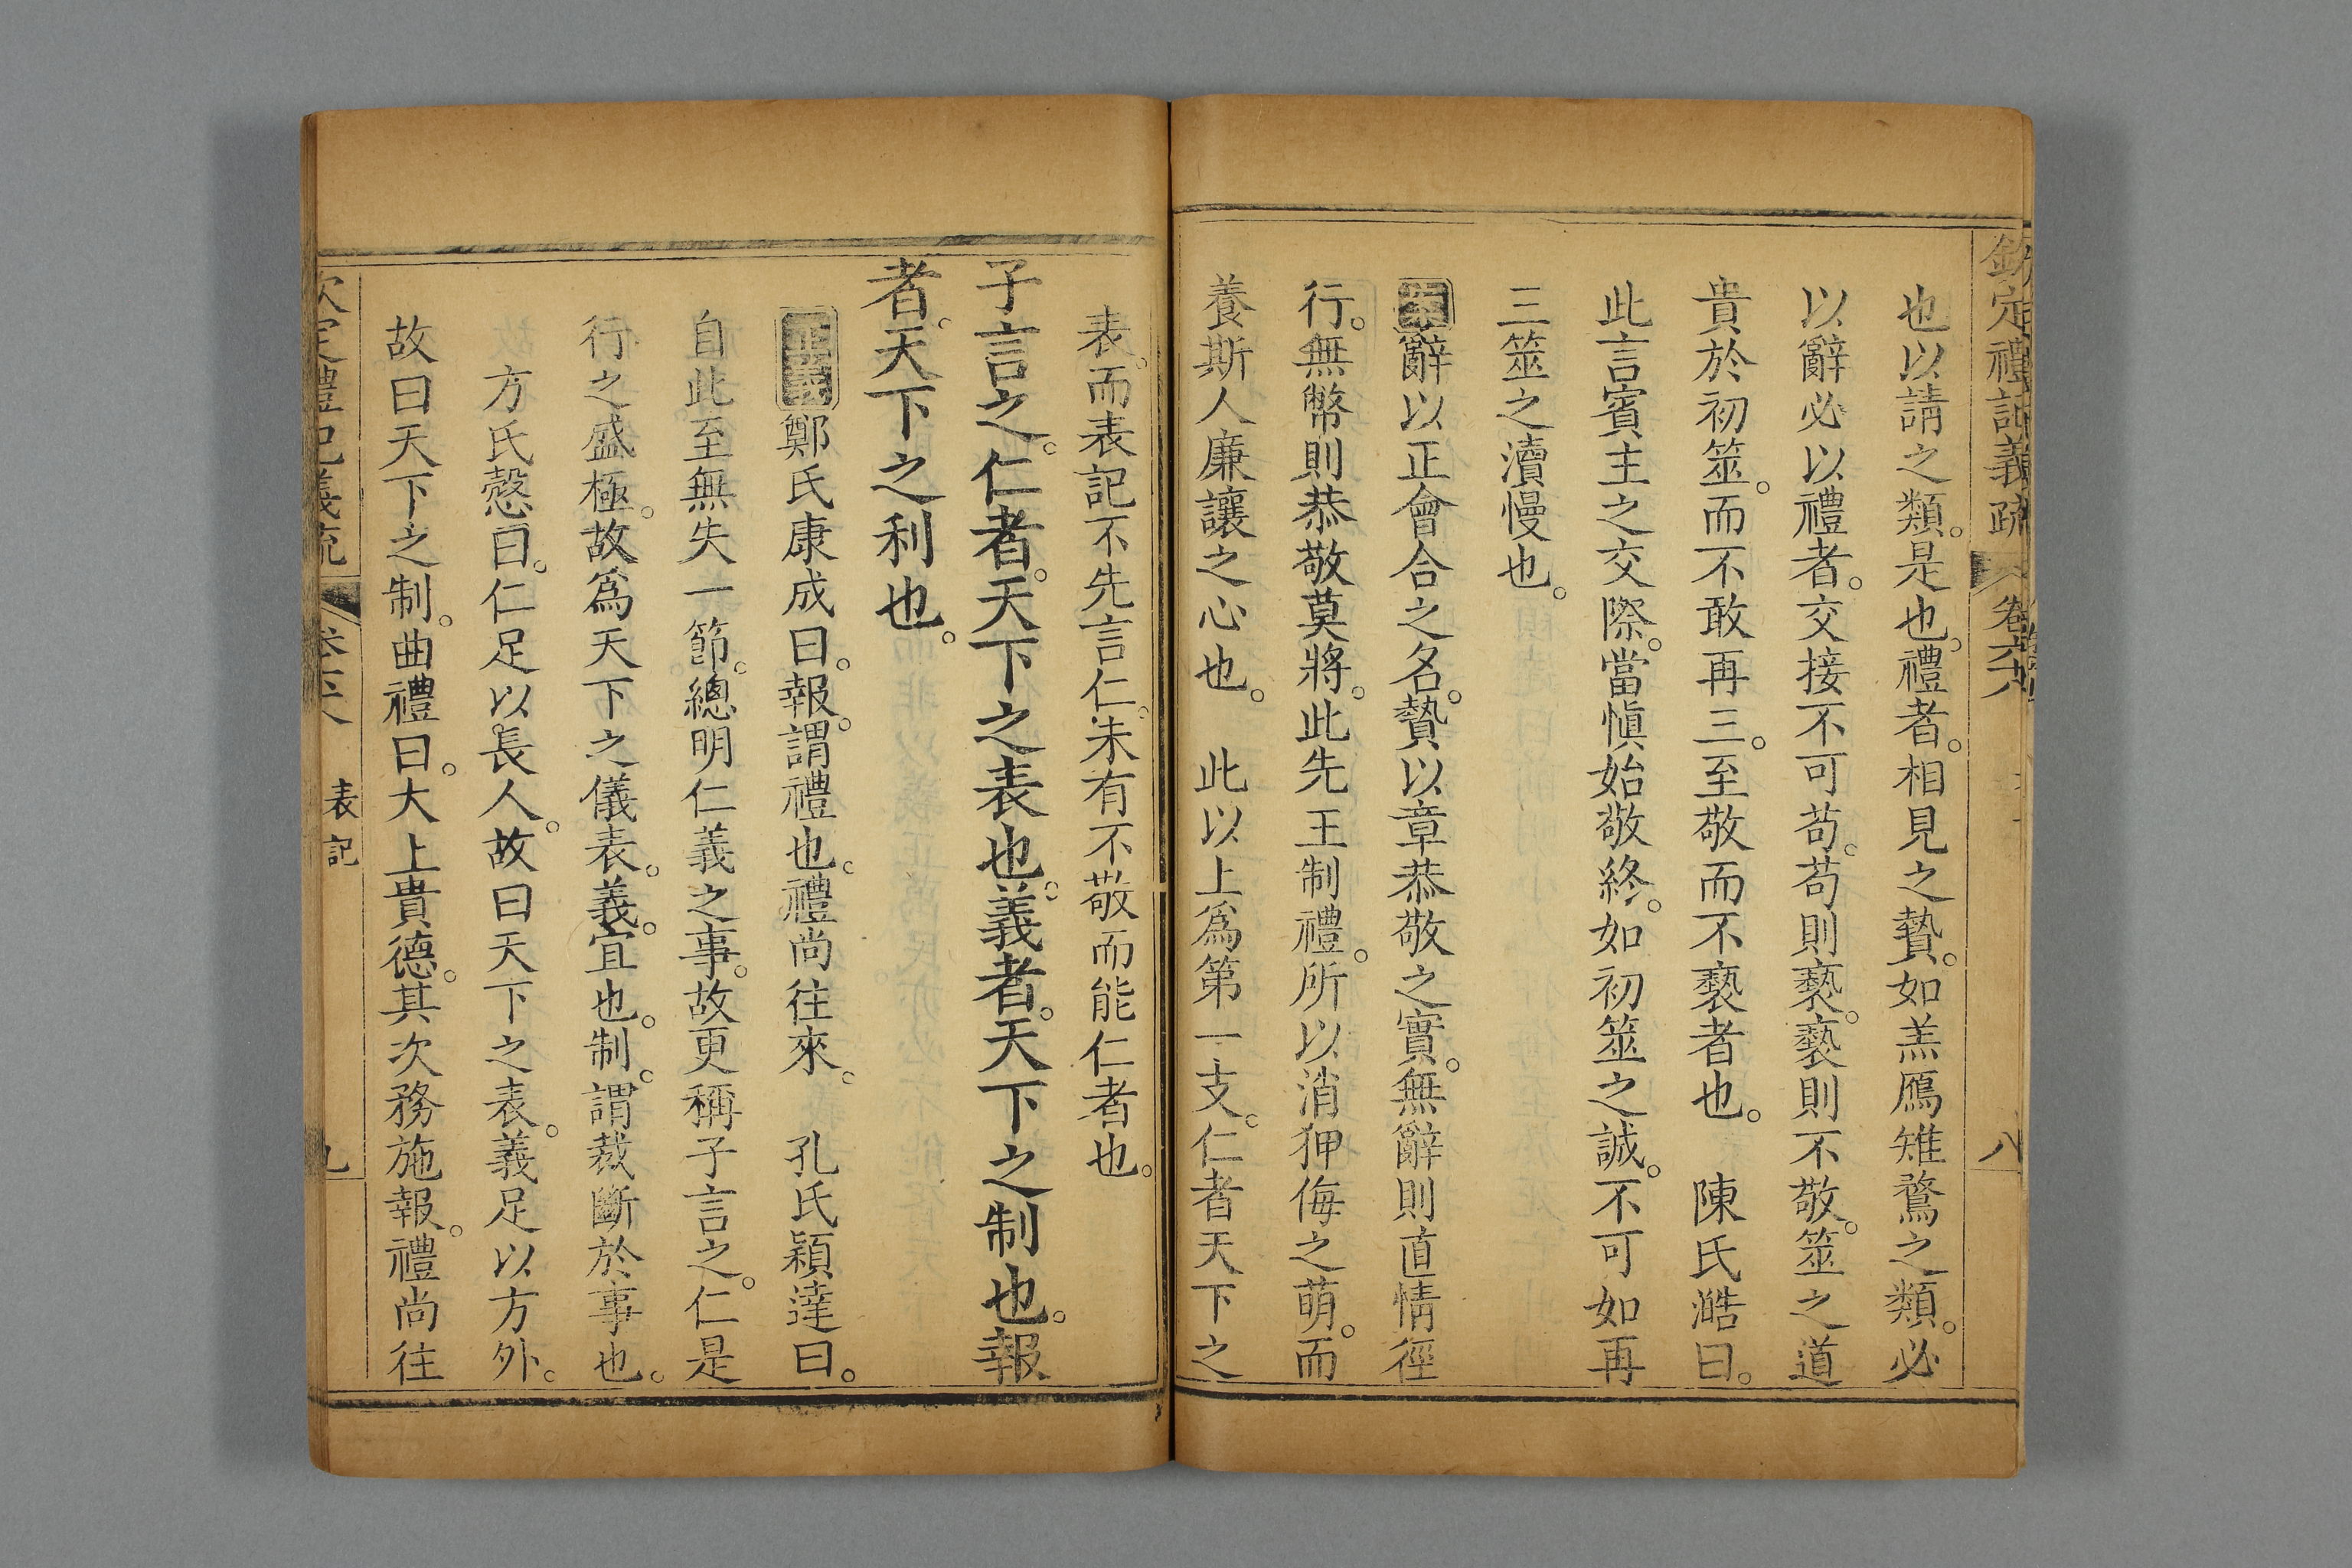 欽定禮記義疏 卷六十八 八
也以請之類。是也。禮者。相見之贄。如羔鴈雉鶩之類。必
以辭必以禮者。交接不可苟。苟則褻。褻則不敬。筮之道
貴於初筮。而不敢再三。至敬而不褻者也。 陳氏澔曰。
此言賓主之交際。當慎始敬終。如初筮之誠。不可如再
三筮之瀆慢也。
案辭以正會合之名。贄以章恭敬之實。無辭則直情徑
行。無幣則恭敬莫將。此先王制禮。所以消狎侮之萌。而
養斯人廉讓之心也。 此以上為第一支。仁者天下之
表。而表記不先言仁。未有不敬而能仁者也。
子言之。仁者。天下之表也。義者。天下之制也。報
者。天下之利也。
正義鄭氏康成曰。報。謂禮也。禮尚往來。 孔氏穎達曰。
自此至無失一節。總明仁義之事。故更稱子言之。仁是
行之盛極。故為天下之儀表。義。宜也。制。謂裁斷於事也。
方氏慤曰。仁足以長人。故曰天下之表。義足以方外。
故曰天下之制。曲禮曰。大上貴德。其次務施報。禮尚往
欽定禮記義疏 卷六十八 表記 九